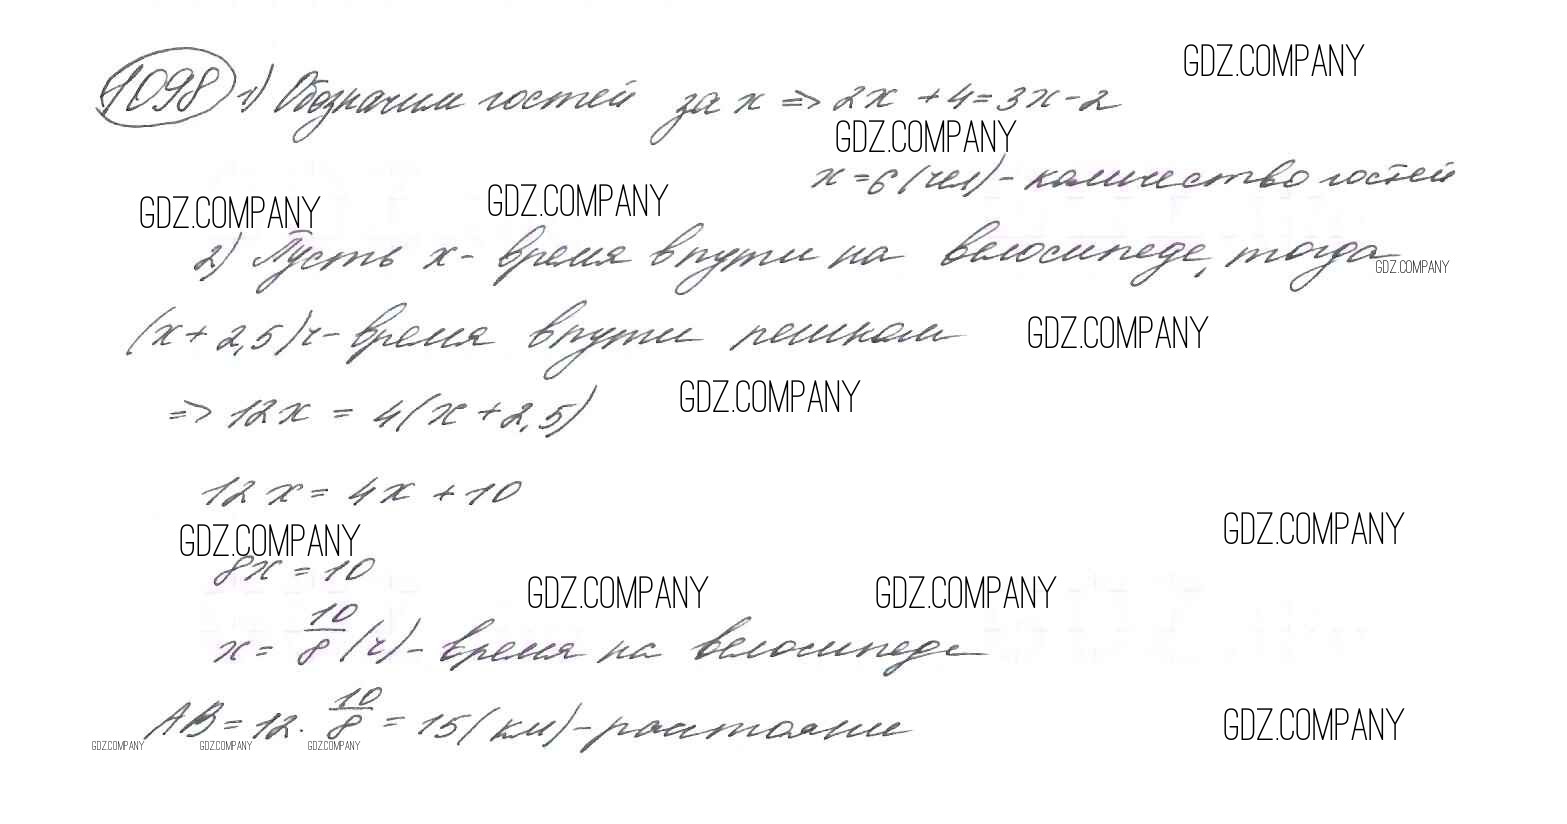 GDZ.COMPANY
1098 1) Обозначим гостей за x => 2x + 4 = 3x - 2
GDZ.COMPANY
x = 6 (чел) - количество гостей
GDZ.COMPANY GDZ.COMPANY
2) Пусть x - время в пути на велосипеде, тогда
GDZ.COMPANY
(x + 2,5) ч - время в пути пешком
GDZ.COMPANY
=> 12x = 4(x + 2,5)
GDZ.COMPANY
12x = 4x + 10
GDZ.COMPANY GDZ.COMPANY
8x = 10
GDZ.COMPANY GDZ.COMPANY
x = 10/8 (ч) - время на велосипеде
AB = 12 · 10/8 = 15 (км) - расстояние
GDZ.COMPANY
GDZ.COMPANY GDZ.COMPANY GDZ.COMPANY